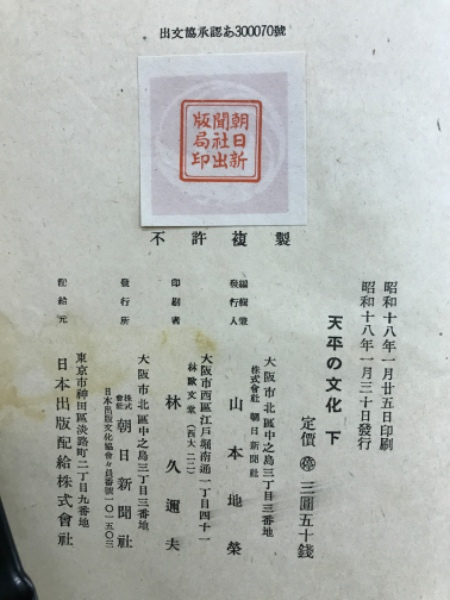 出文協承認あ300070號
朝日新
聞社出
版局印
不許複製
昭和十八年一月廿五日印刷
昭和十八年一月三十日發行
天平の文化 下
定價 三圓五十錢
大阪市北區中之島三丁目三番地
株式會社 朝日新聞社
編輯兼
發行人
山本地榮
大阪市西區江戸堀南通一丁目四十一
林歐文堂(西大二二)
印刷者 林久彌夫
大阪市北區中之島三丁目三番地
發行所 株式會社 朝日新聞社
日本出版文化協會々員番號一〇一五〇三
東京市神田區淡路町二丁目九番地
配給元 日本出版配給株式會社